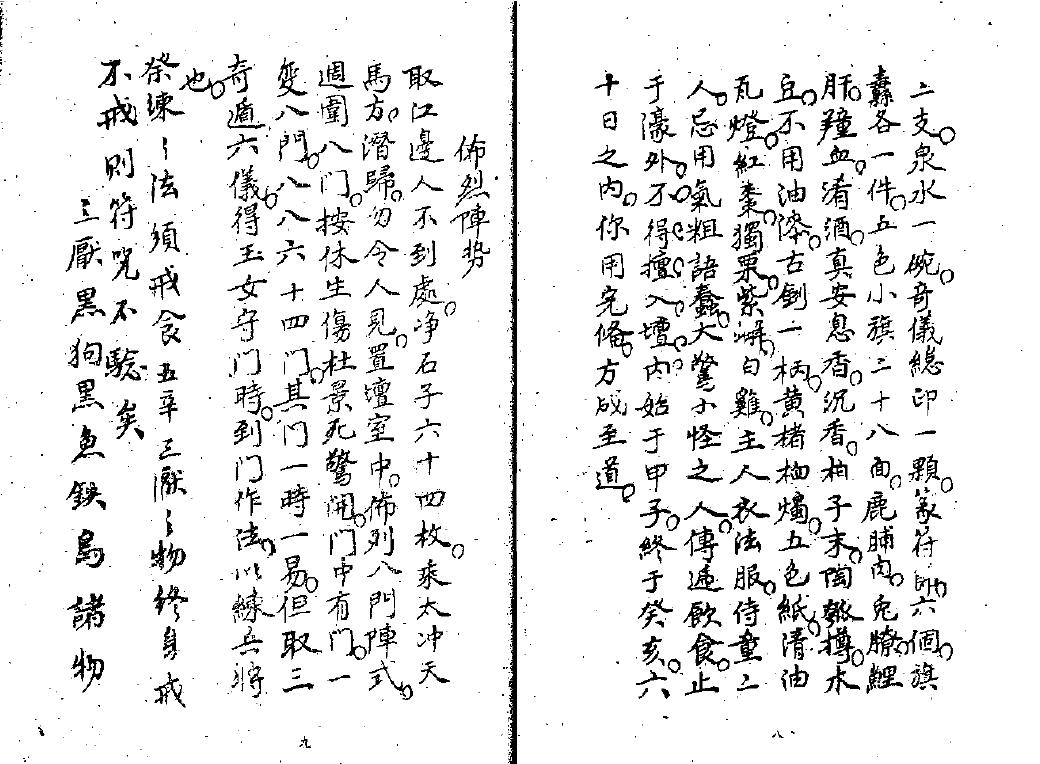 二支。泉水一碗。奇儀總印一顆。篆符印六個。旗
纛各一件。五色小旗二十八面。鹿脯肉。兔膫。鯉
肝。羶血。淆酒。真安息香。沉香。柏子末。陶瓠。摶木
豆。不用油漆。古劍一柄。黃楮柏燭。五色紙。清油
瓦燈。紅棗。獨栗。紫𧐖。白雞。主人衣法服。侍童二
人。忌用氣粗語蠢。大驚小怪之人。傳遞飲食。止
于濠外。不得擅入壇內。始于甲子。終于癸亥。六
十日之內。你用完俻。方成至道。
八
佈烈陣势
取江邊人不到處。净石子六十四枚。乘太冲天
馬方。潛歸。勿令人見。置壇室中。佈列八門陣式。
週圍八門。按休生傷杜景死驚開。門中有門。一
變八門。八八六十四門。其門一時一易。但取三
奇遁六儀。得玉女守門時。到門作法。以練兵將
也。
祭練〻法須戒食五辛三厭〻物終身戒
不戒則符咒不驗矣
三厭黑狗黑魚鉄鳥諸物
九